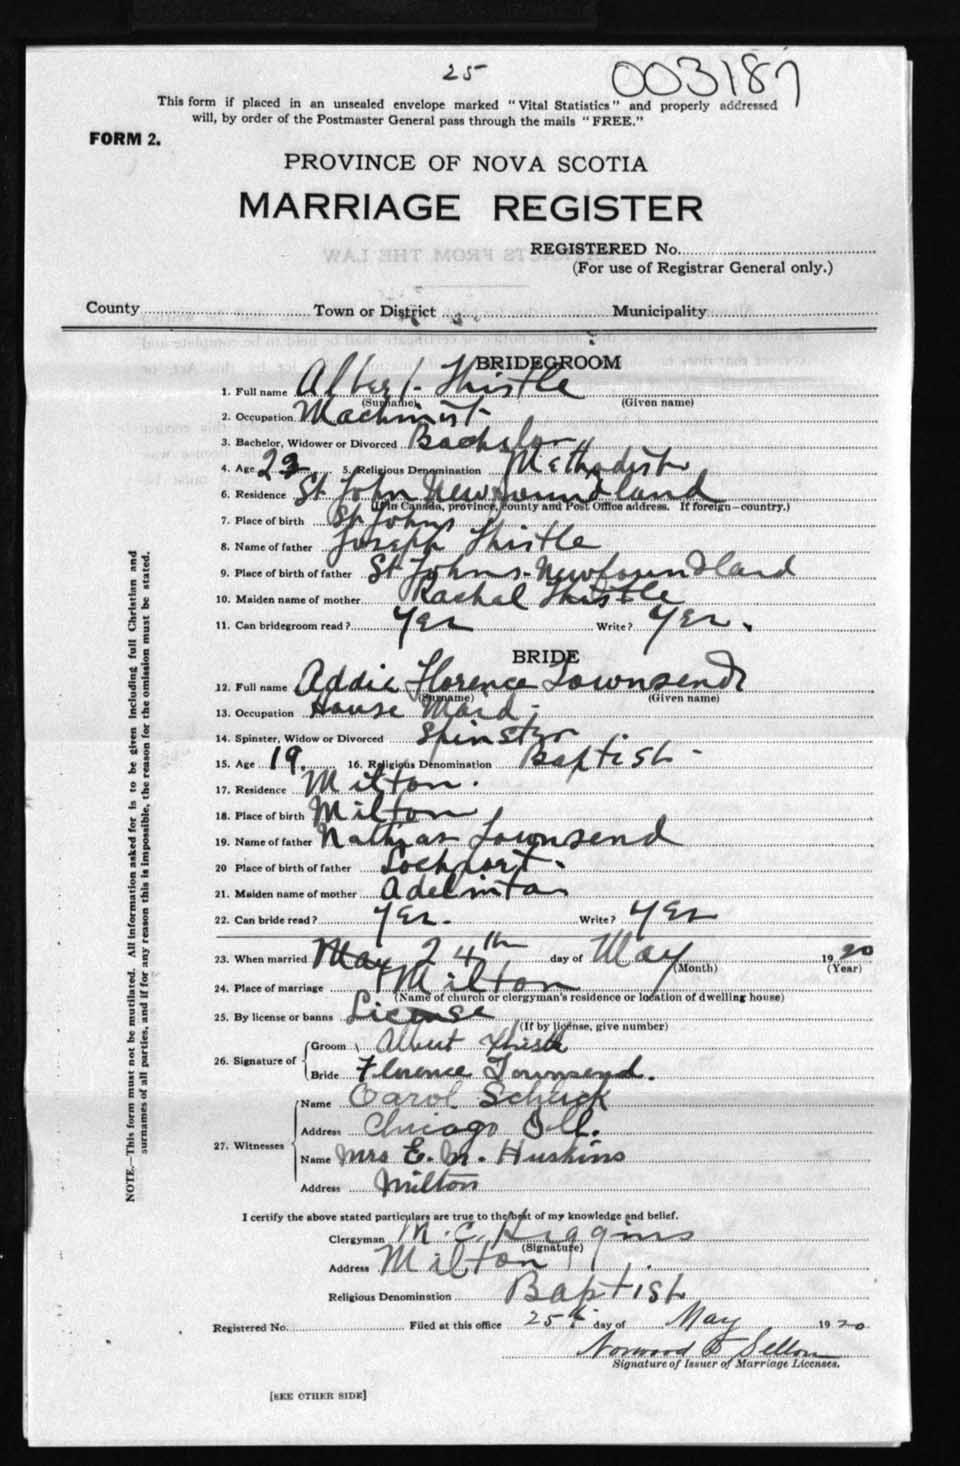 25
003187
This form if placed in an unsealed envelope marked "Vital Statistics" and properly addressed
will, by order of the Postmaster General pass through the mails "FREE."
FORM 2.
PROVINCE OF NOVA SCOTIA
MARRIAGE REGISTER
REGISTERED No.
(For use of Registrar General only.)
County Town or District Municipality
BRIDEGROOM
1. Full name Albert Thistle
(Surname) (Given name)
2. Occupation Machinist
3. Bachelor, Widower or Divorced Bachelor
4. Age 23 5. Religious Denomination Methodist
6. Residence St John Newfoundland
(If in Canada, province, county and Post Office address. If foreign—country.)
7. Place of birth St Johns
8. Name of father Joseph Thistle
9. Place of birth of father St Johns. Newfoundland
10. Maiden name of mother Rachel Thistle
11. Can bridegroom read? Yes Write? Yes.
BRIDE
12. Full name Addie Florence Townsend
(Surname) (Given name)
13. Occupation House Maid.
14. Spinster, Widow or Divorced Spinster
15. Age 19. 16. Religious Denomination Baptist
17. Residence Milton.
18. Place of birth Milton
19. Name of father Townsend
20 Place of birth of father Lockport.
21. Maiden name of mother
22. Can bride read? Yes. Write? Yes
23. When married May 24th day of May 1920
(Month) (Year)
24. Place of marriage Milton
(Name of church or clergyman's residence or location of dwelling house)
25. By license or banns License
(If by license, give number)
26. Signature of
Groom Albert Thistle
Bride Florence Townsend.
27. Witnesses
Name Carol Schuck
Address Chicago Ill.
Name Mrs E. M. Huskins
Address Milton
I certify the above stated particulars are true to the best of my knowledge and belief.
Clergyman M. C. Higgins
(Signature)
Address Milton
Religious Denomination Baptist
Registered No. Filed at this office 25th day of May 1920
Norwood
Signature of Issuer of Marriage Licenses.
[SEE OTHER SIDE]
NOTE.—This form must not be mutilated. All information asked for is to be given including full Christian and
surnames of all parties, and if for any reason this is impossible, the reason for the omission must be stated.